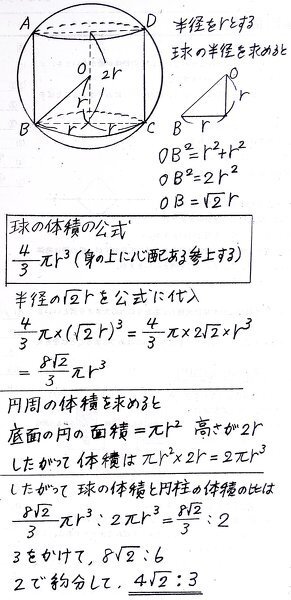 A D
半径をrとする
球の半径を求めると
O 2r
r
B r r C
O
r
B r
OB²=r²+r²
OB²=2r²
OB=√2r
球の体積の公式
4/3 πr³(身の上に心配ある参上する)
半径の√2rを公式に代入
4/3 π×(√2r)³=4/3 π×2√2×r³
=8√2/3 πr³
円周の体積を求めると
底面の円の面積=πr² 高さが2r
したがって体積はπr²×2r=2πr³
したがって球の体積と円柱の体積の比は
8√2/3 πr³:2πr³=8√2/3:2
3をかけて,8√2:6
2で約分して,4√2:3